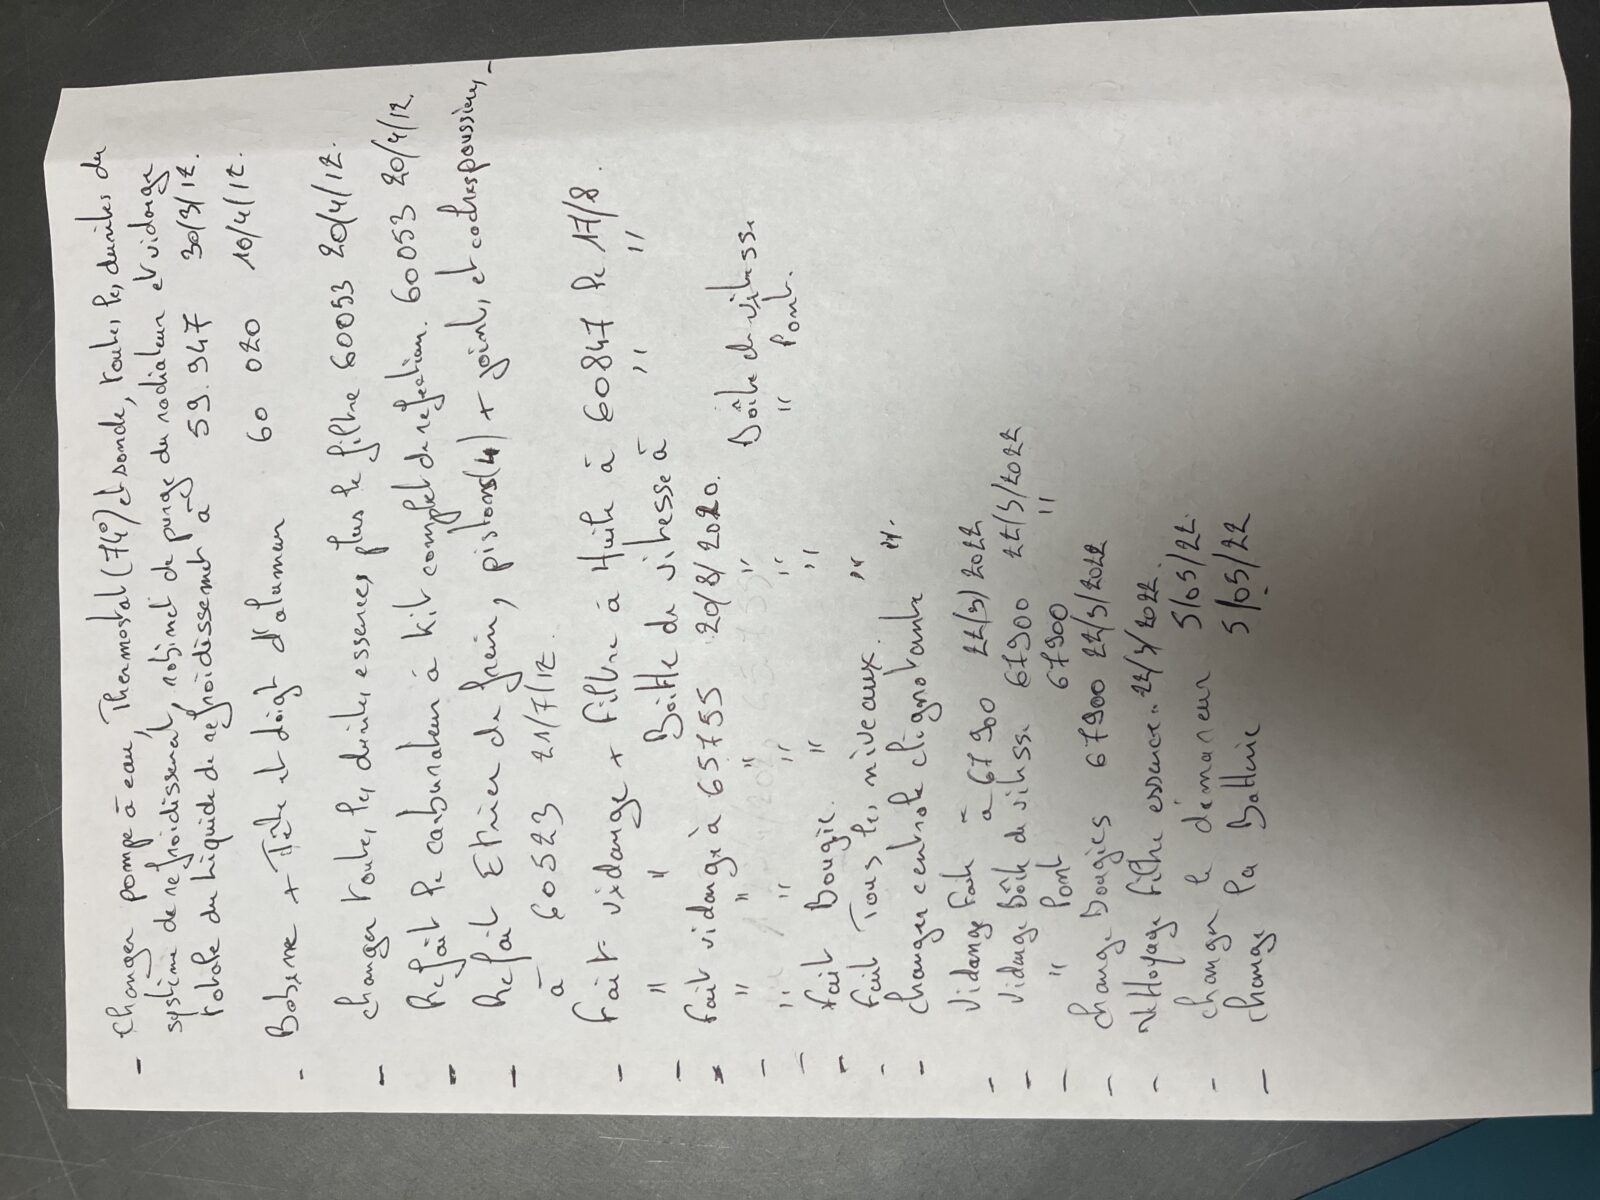 - Changer pompe à eau, Thermostat (74°) et sonde, toutes les durites du
système de refroidissement, robinet de purge du radiateur et vidange
totale du liquide de refroidissement à 59.947 30/3/12.
- Bobine + Tête et doigt d'alumeur 60 020 10/4/12.
- changer toutes les durites essences, plus le filtre 60053 20/4/12.
- Refait le carburateur à kit complet de refection. 60053 20/4/12.
- Refait Etrier de frein, pistons (4) + joints, et caches poussières, -
à 60523 21/7/12.
- Fait vidange + filtre à Huile à 60847 le 17/8.
- " " Boitte de vitesse à " "
- Fait vidange à 65755 20/8/2020.
- " " " " Boîte de vitesse
- " " " " " Pont.
- Fait Bougie. " "
- Fait Tous les niveaux. "
- changer centrale clignotante ".
- Vidange Faite à 67 900 22/3/2022
- Vidange Boîte de vitesse 67900 22/3/2022
- " Pont 67900 "
- change Bougies 67900 22/3/2022
- Nettoyage filtre essence.. 22/3/2022.
- changer le démareur 5/05/22.
- change la Batterie 5/05/22